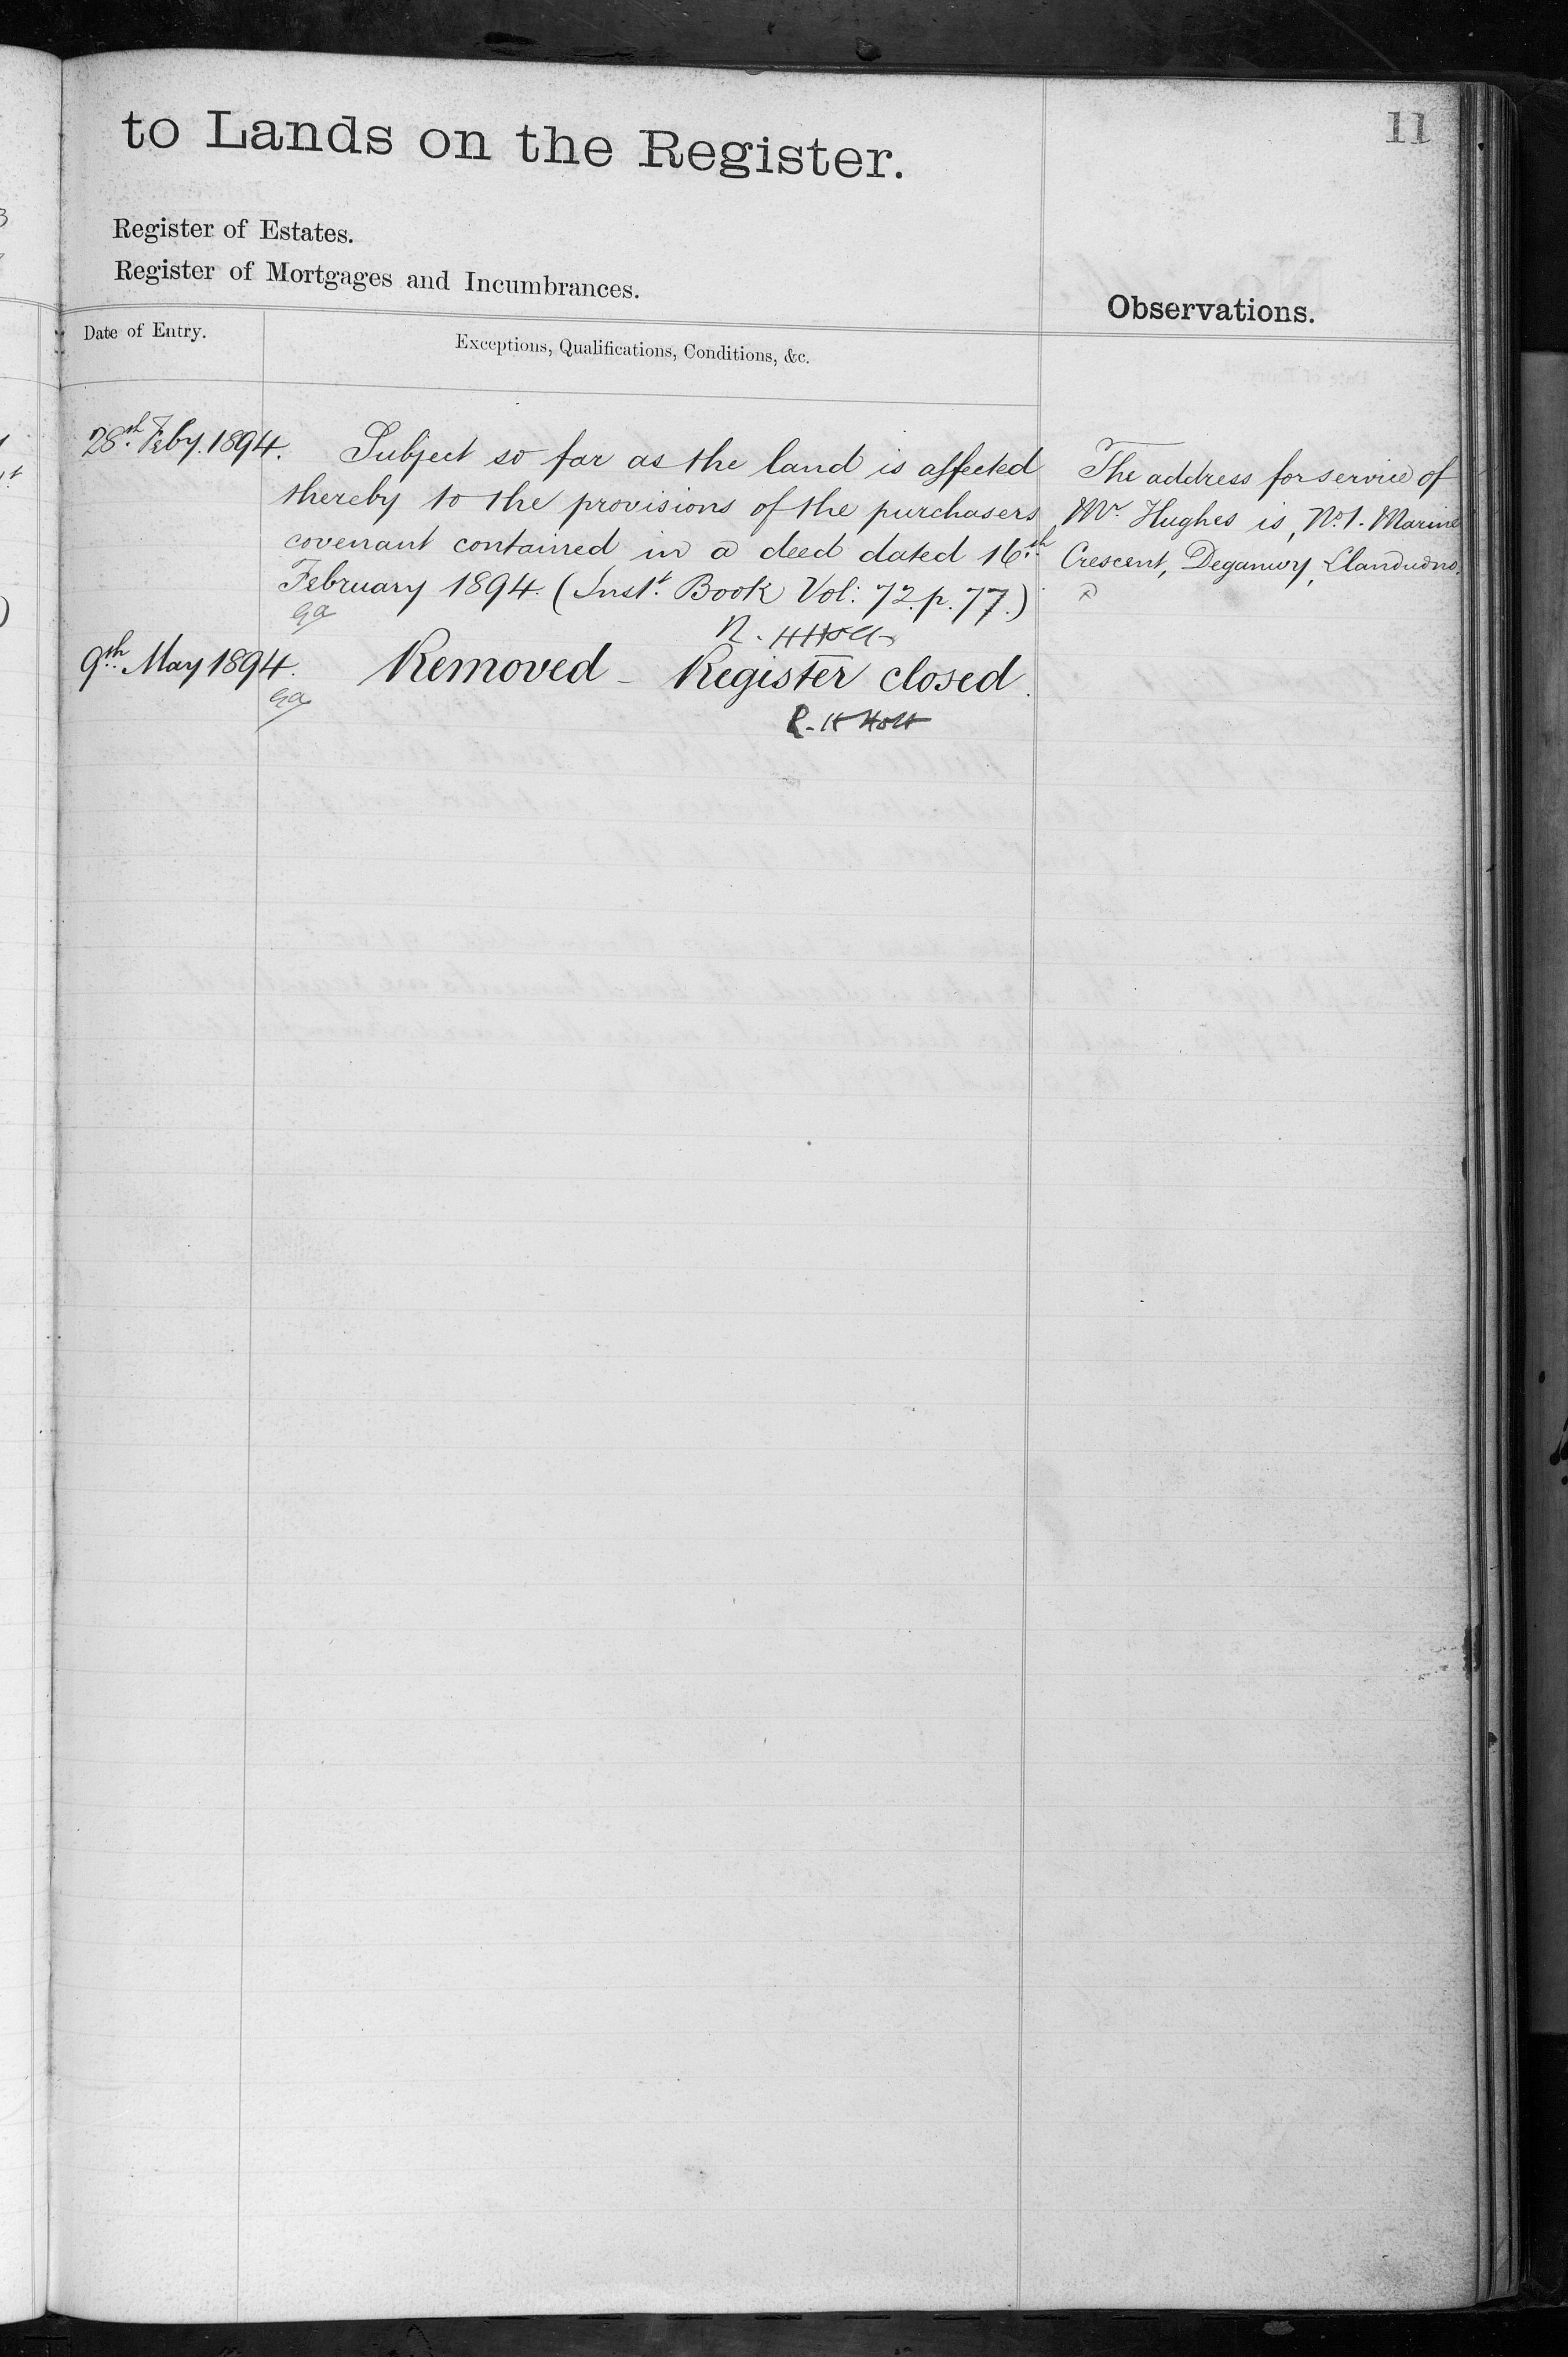 11
to Lands on the Register.
Register of Estates.
Register of Mortgages and Incumbrances.
Observations.
Date of Entry.
Exceptions, Qualifications, Conditions, &c.
28th. Feby. 1894.
Subject so far as the land is affected
thereby to the provisions of the purchasers
covenant contained in a deed dated 16th.
February 1894. (Inst. Book Vol: 72. p. 77.)
The address for service of
Mr. Hughes is, No. 1. Marine
Crescent, Deganwy, Llandudno.
9th. May 1894.
Removed - Register closed.
R. H Holt